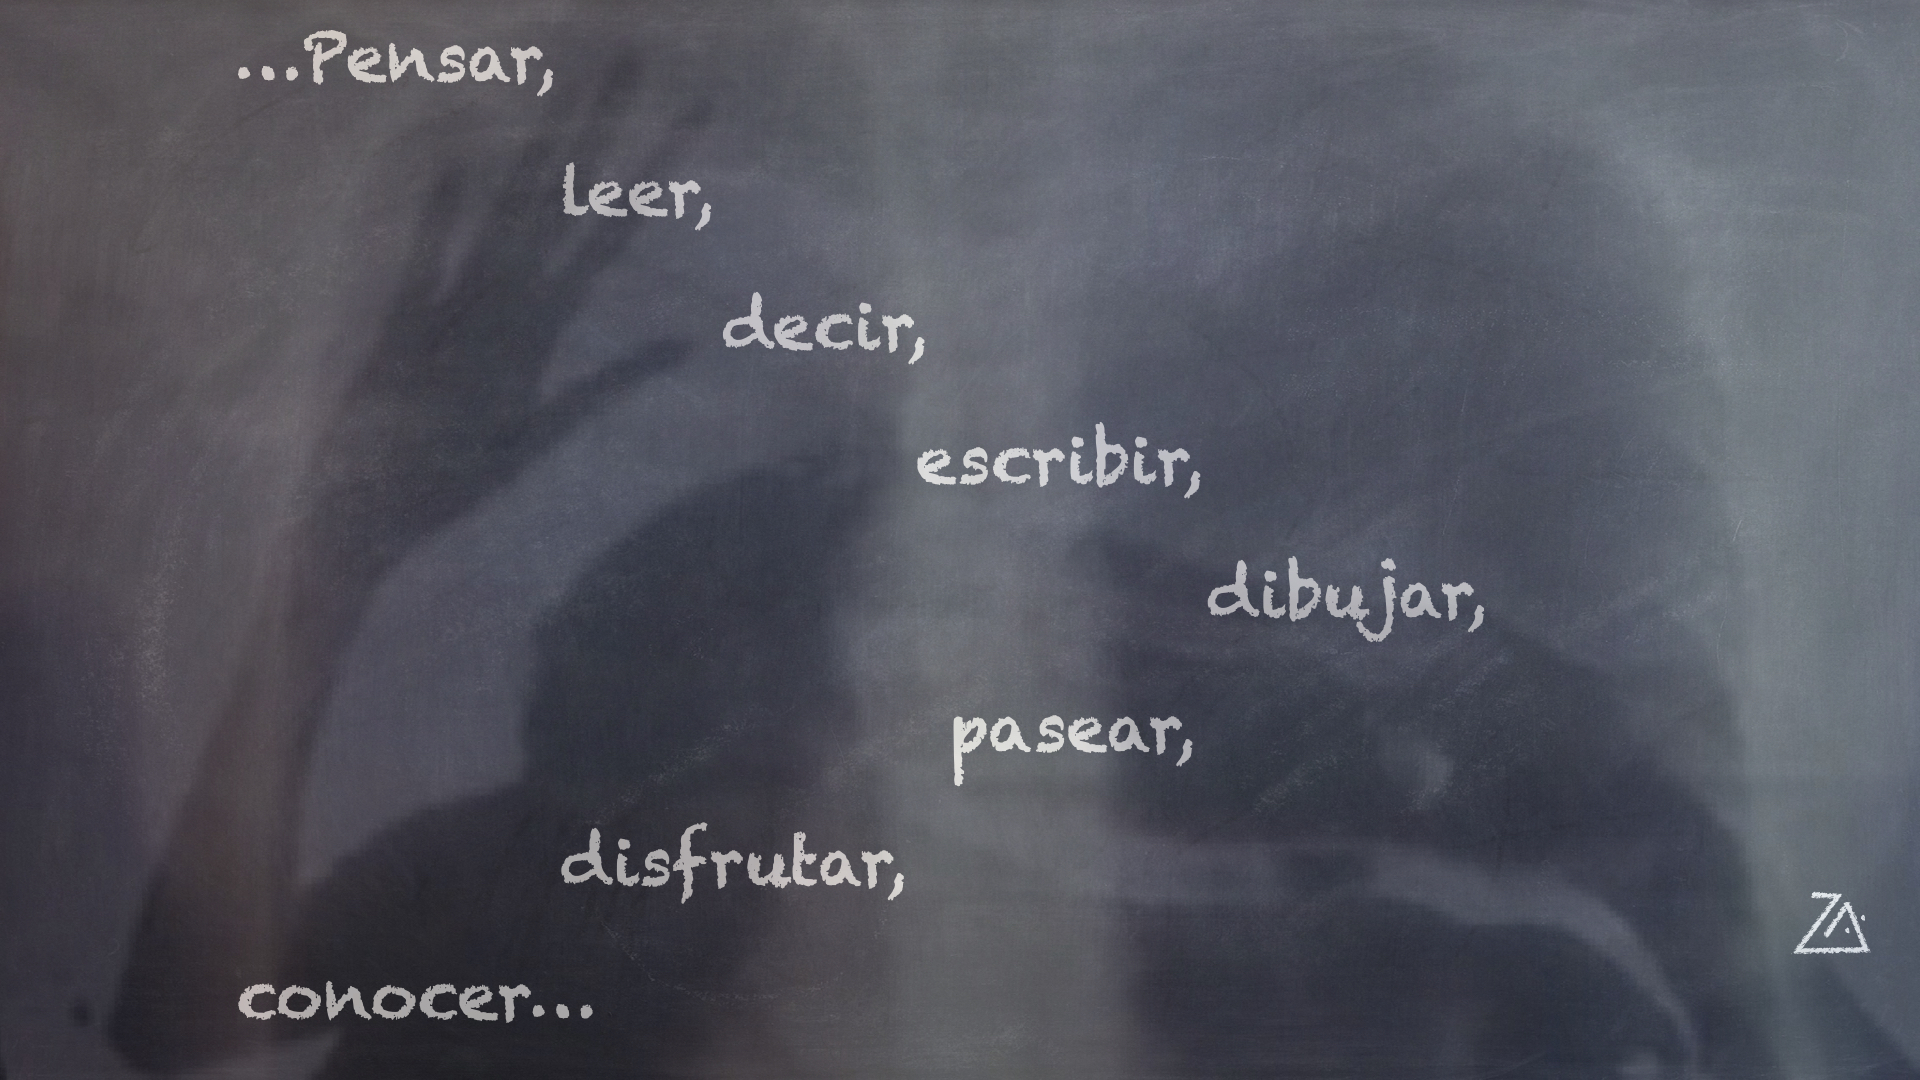 ...Pensar,
leer,
decir,
escribir,
dibujar,
pasear,
disfrutar,
conocer...